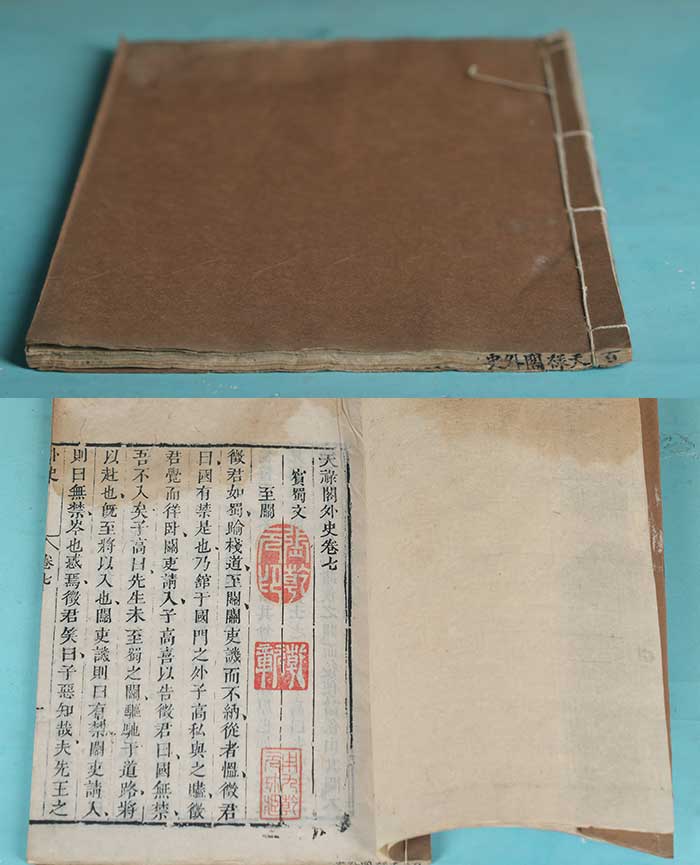 天祿閣外史
天祿閣外史卷七
賓蜀文
至關
徵君如蜀踰棧道至關關吏譏而不納從者慍徵君
曰國有禁是也乃舘于國門之外子高私與之嘘徵
君覺而徉臥關吏請入子高喜以告徵君曰國無禁
吾不入矣子高曰先生未至蜀之關驅馳于道路將
以赴也旣至將以入也關吏譏則曰有禁關吏請入
則曰無禁岑也惑焉徵君笑曰子惡知哉夫先王之
外史 卷七 一